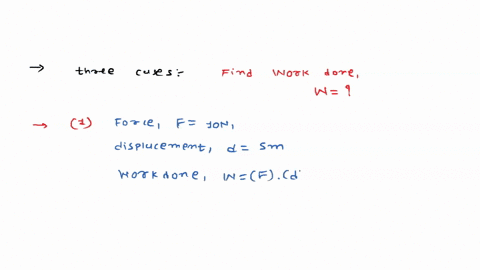 → three cases:- Find work done,
W = ?
→ (1) Force, F = 10N,
displacement, d = 5m
Workdone, W = (F).(d